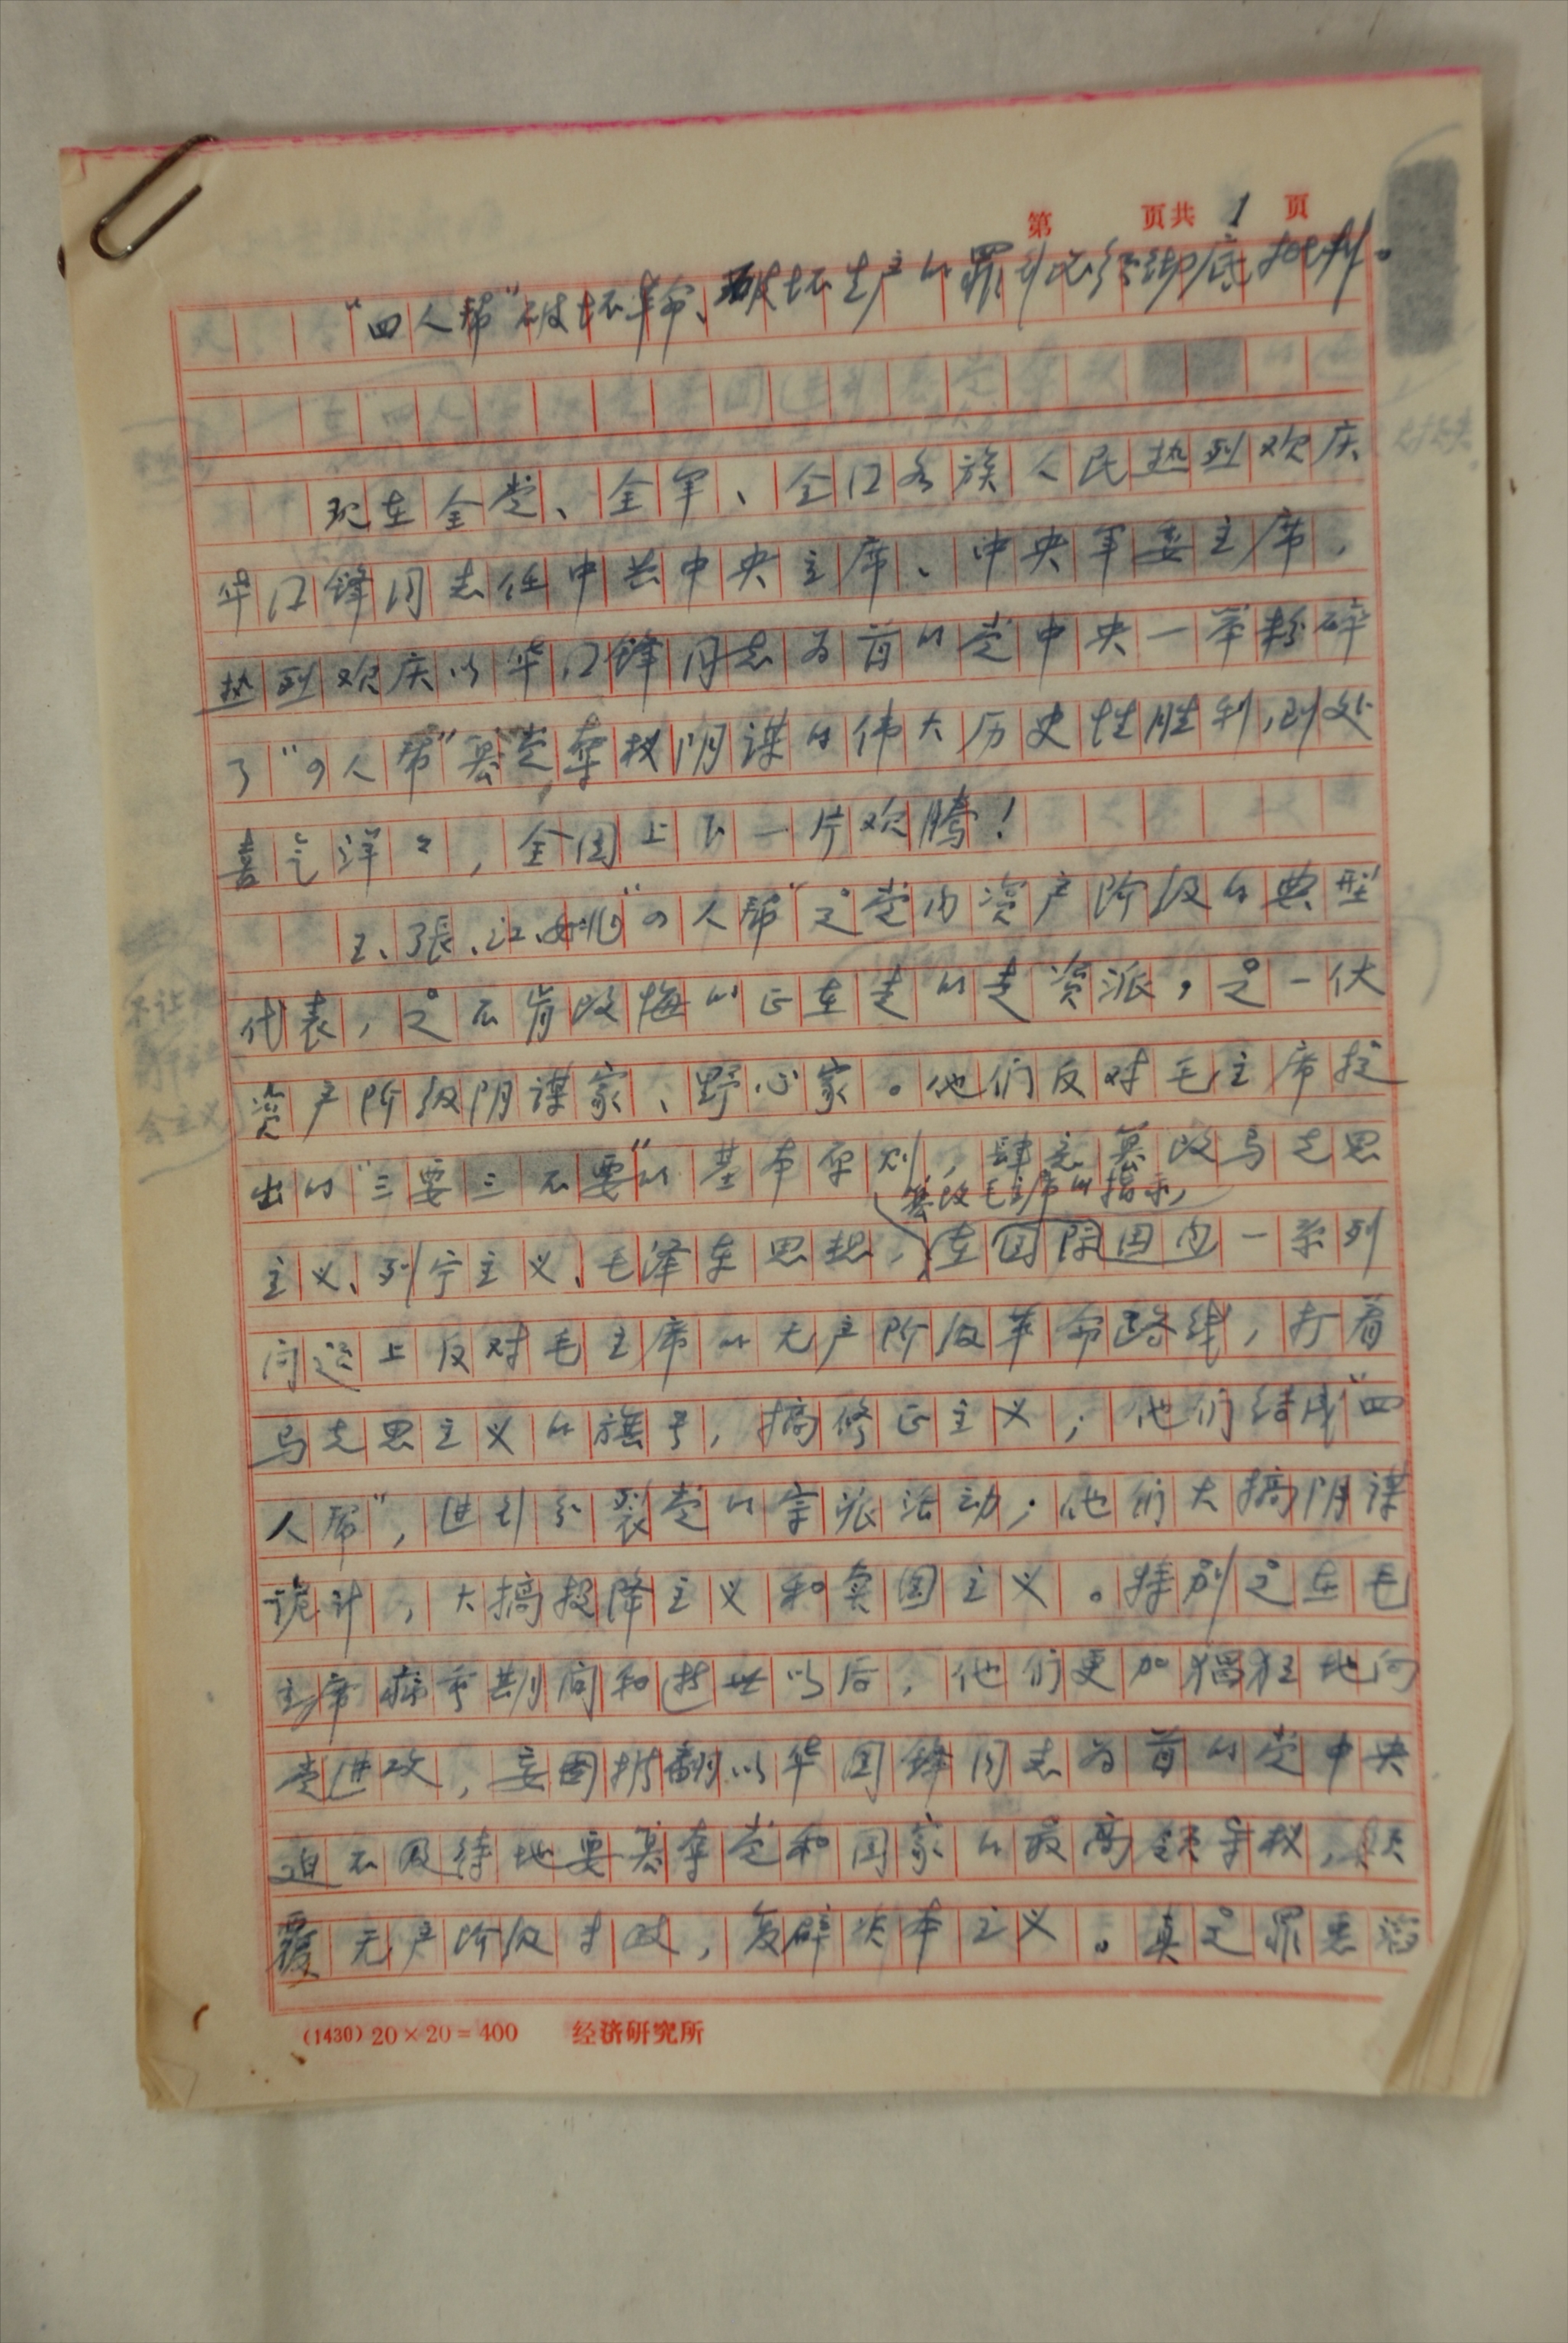 第 页共 1 页
“四人帮”破坏革命、破坏生产的罪行必须彻底批判。
现在全党、全军、全国各族人民热烈欢庆
华国锋同志任中共中央主席、中央军委主席，
热列欢庆以华国锋同志为首的党中央一举粉碎
了“四人帮”篡党夺权阴谋的伟大历史性胜利，到处
喜气洋々，全国上下一片欢腾！
王、張、江、姚“四人帮”是党内资产阶级的典型
代表，是不肯改悔的正在走的走资派，是一伙
资产阶级阴谋家、野心家。他们反对毛主席提
出的“三要三不要”的基本原则，肆意篡改马克思
篡改毛主席的指示，
主义、列宁主义、毛泽东思想，在国际国内一系列
问题上反对毛主席的无产阶级革命路线，打着
马克思主义的旗号，搞修正主义；他们结成“四
人帮”，进行分裂党的宗派活动；他们大搞阴谋
诡计，大搞投降主义和卖国主义。特别是在毛
主席病重期间和逝世以后，他们更加猖狂地向
党进攻，妄图推翻以华国锋同志为首的党中央
迫不及待地要篡夺党和国家的最高领导权，颠
覆无产阶级专政，复辟资本主义。真是罪恶滔
(1430) 20×20=400 经济研究所